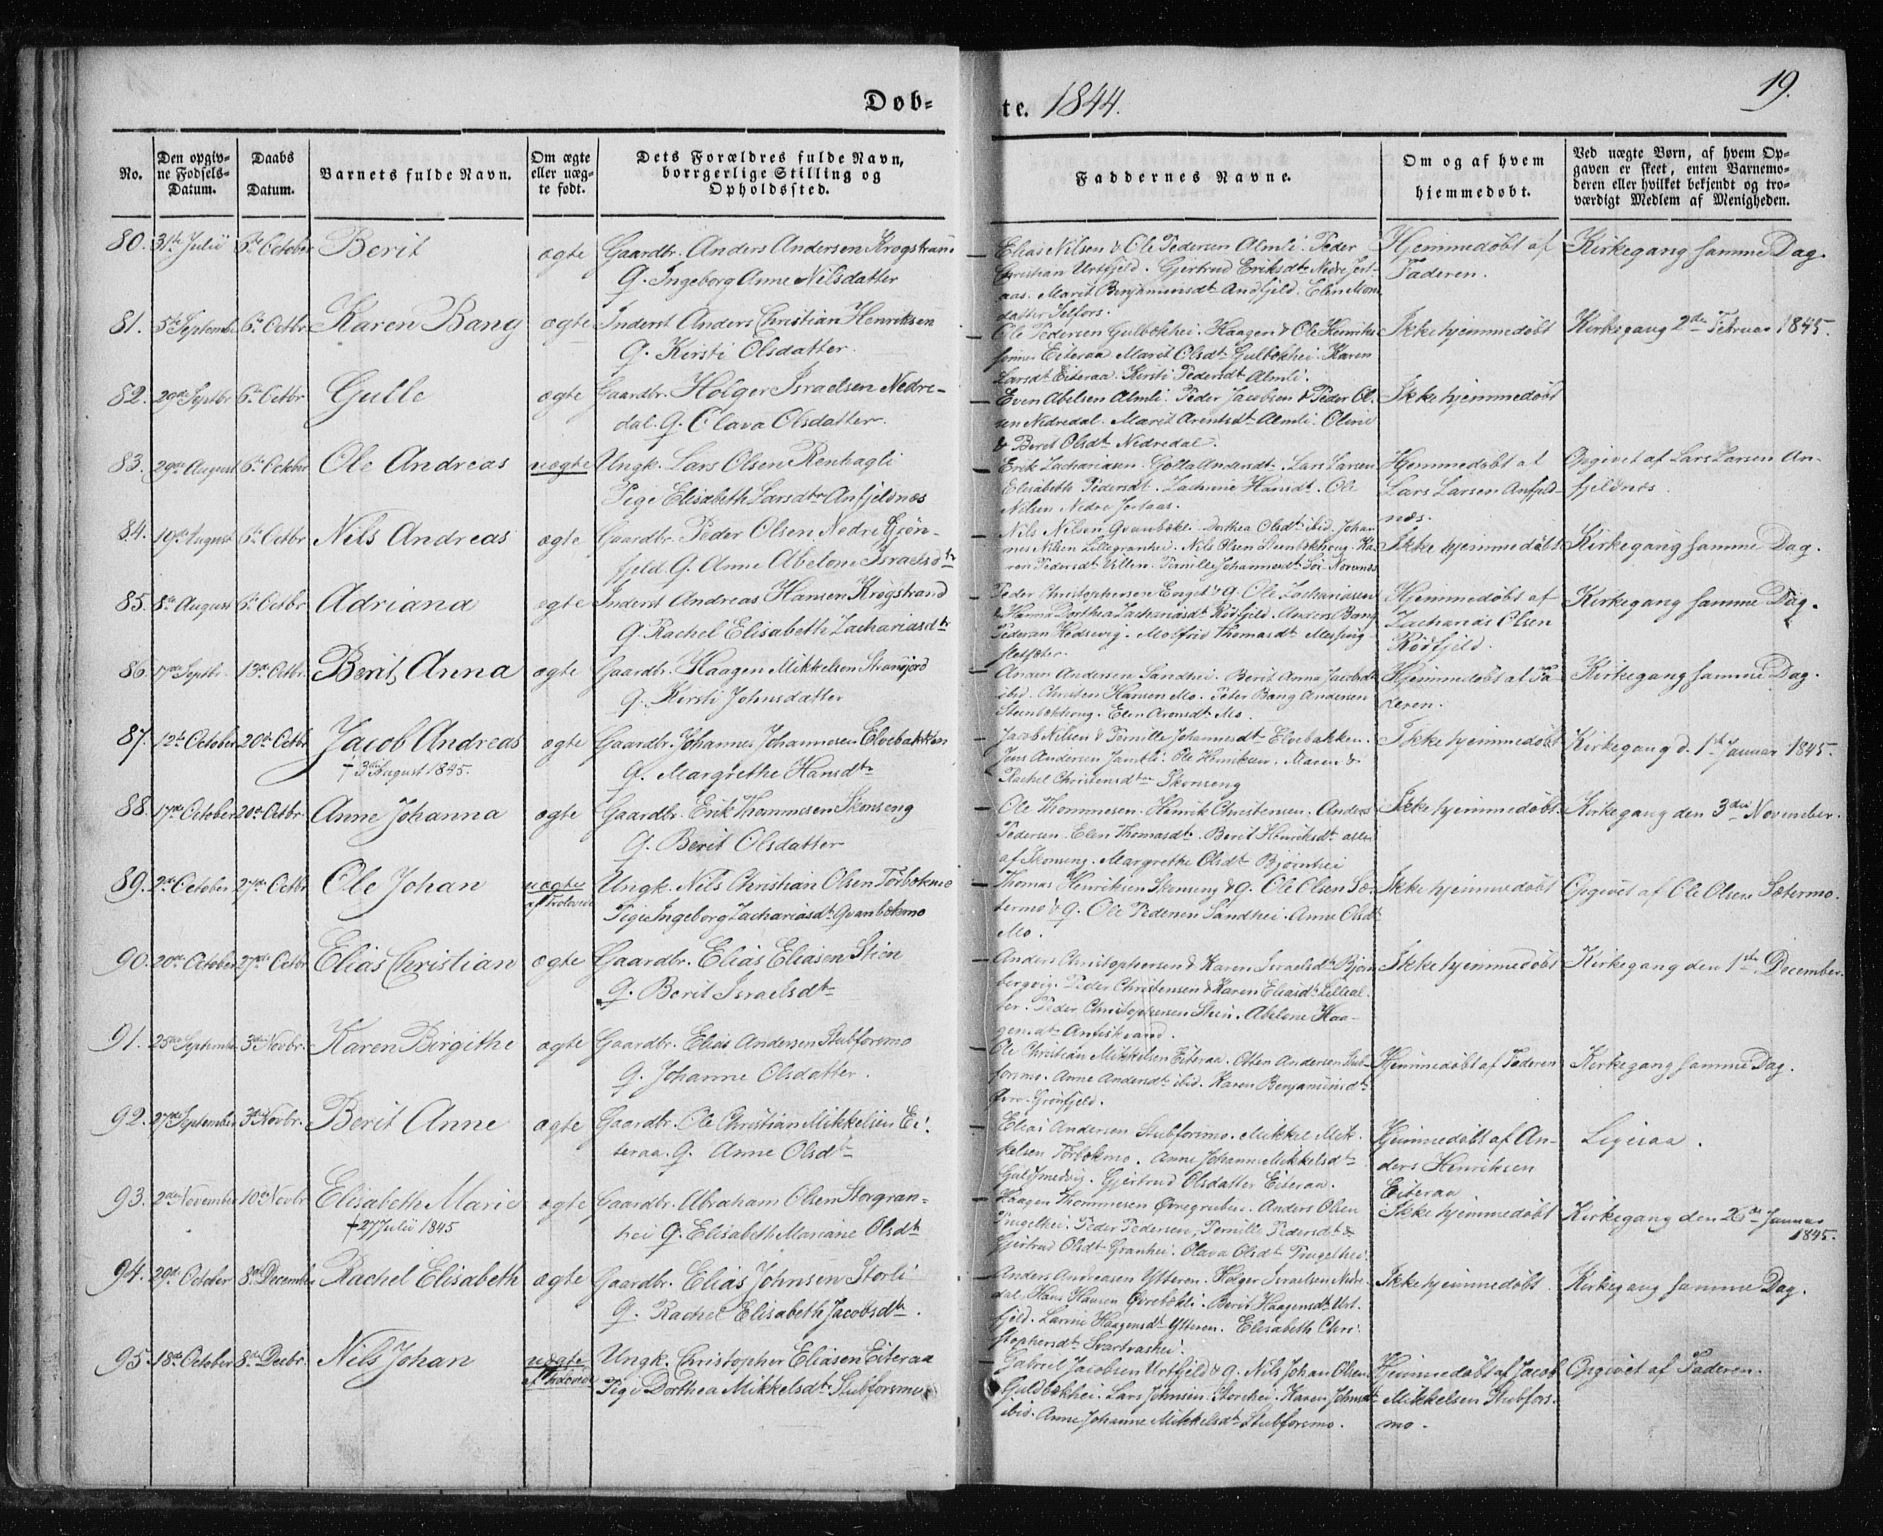 Døb-
te. 1844.
19.
No.
Den opgiv-
ne Fødsels-
Datum.
Daabs
Datum.
Barnets fulde Navn.
Om ægte
eller uæg-
te født.
Dets Forældres fulde Navn,
borrgerlige Stilling og
Opholdssted.
Faddernes Navne.
Om og af hvem
hjemmedøbt.
Ved uægte Børn, af hvem Op-
gaven er skeet, enten Barnemo-
deren eller hvilket bekjendt og tro-
værdigt Medlem af Menigheden.
80. 31te Julii 6te October Berit ægte Gaardbr. Anders Andersen Krogstrand
G. Ingeborg Anne Nilsdatter
Elias Nilsen & Ole Pedersen Almli. Peder
Christian Urtfjeld. Gjertrud Eriksdt Nedre Jert-
aas. Marit Benjaminsdt Andfjeld. Elen Mons
datter Selfors.
Hjemmedøbt af
Faderen.
Kirkegang samme Dag.
81. 5te September 6te Octbr. Karen Bang ægte Inderst Anders Christian Henriksen
G. Kirsti Olsdatter.
Ole Pedersen Gulbækhei. Haagen & Ole Henrik
sønner Eiteraa. Marit Olsdt Gulbækhei. Karen
Larsdt Eiteraa. Kirsti Pedersdt Almli.
Ikke hjemmedøbt
Kirkegang 2den Februar 1845.
82. 29de Septbr. 6te Octbr. Gulle ægte Gaardbr. Holger Israelsen Nedre-
dal. G. Olava Olsdatter.
Even Abelsen Almli. Peder Jacobsen & Peder Ol-
sen Nedredal. Marit Arentsdt Almli. Oline
& Berit Olsdt Nedredal.
Ikke hjemmedøbt
83. 29de August 6te October Ole Andreas uægte Ungk. Lars Olsen Renhagli
Pige Elisabeth Larsdtr Anfjeldnæs
Erik Zachariasen. Golla Andersdt. Lars Larsen
Elisabeth Pedersdt. Zachrine Hansdt. Ole
Nilsen Nedre Jertaas.
Hjemmedøbt af
Lars Larsen Anfjeld-
næs.
Opgivet af Lars Larsen An-
fjeldnæs.
84. 19de August 6te Octbr. Nils Andreas ægte Gaardbr. Peder Olsen Nedre Grøn-
fjeld. G. Anne Abelone Israelsdtr
Nils Nilsen Gvanbækl. Dorthea Olsdt ibid. Johan
nes Nilsen Lillegranhei. Nils Olsen Steenbækhoug. Ka-
ren Pedersdt Villen. Pernille Johannesdt Sör-Novnæs
Ikke hjemmedøbt
Kirkegang samme Dag.
85. 8de August 6te Octbr. Adriana ægte Inderst Andreas Hansen Krogstrand
G. Rachel Elisabeth Zachariasdtr
Peder Christophersen Enget & G. Ole Zachariassen
& Hanna Dorthea Zachariasdt Rödfjeld. Anders Bang
Pedersen Hedsevig. Molfrid Thomasdt Messing-
sletsæter.
Hjemmedøbt af
Zacharias Olsen
Rödfjeld.
Kirkegang samme Dag.
86. 17de Septbr. 13de Octbr. Berit Anna ægte Gaardbr. Haagen Mikkelsen Stranjord
G. Kirsti Johnsdatter
Anders Andersen Sandhei. Berit Anna Jacobsdt
ibid. Christen Hansen Mo. Peter Bang Andersen
Steenbækhoug. Elen Arensdt Mo.
Hjemmedøbt af Fa-
deren.
Kirkegang samme Dag.
87. 12te October 20de Octbr. Jacob Andreas ægte Gaardbr. Johannes Johannesen Elvebakken
† 3die August 1845.
G. Margrethe Hansdtr
Jacob Nilsen & Pernille Johannesdt Elvebakken.
Jens Andersen Jamtli. Ole Henriksen, Maren &
Rachel Christensdtr Skonseng
Ikke hjemmedøbt
Kirkegang d. 1ste Januar 1845.
88. 17de October 20de Octbr. Anne Johanna ægte Gaardbr. Erik Thommesen Skonseng
G. Berit Olsdatter
Ole Thommesen. Henrik Christensen. Anders
Pedersen. Elen Thomasdt. Berit Henriksdt alle
af Skonseng. Margrethe Olsdt Bjørnhei
Ikke hjemmedøbt.
Kirkegang den 3die November.
89. 2de October 27de Octbr. Ole Johan uægte
af Trolovede
Ungk. Nils Christian Olsen Torbækmo
Pige Ingeborg Zachariasdt Gvanbækmo
Thomas Henriksen Skonseng & G. Ole Olsen Sæ-
termo & G. Ole Pedersen Sandhei. Anne Olsdt
Mo.
Ikke hjemmedøbt
Opgivet af Ole Olsen Sætermo.
90. 20de October 27de Octbr. Elias Christian ægte Gaardbr. Elias Eliasen Stien
G. Berit Israelsdtr
Anders Christophersen & Karen Israelsdt Bjørn
bergvig. Peder Christensen & Karen Eliasdt Lilleal-
ter. Peder Christophersen Stien. Abelone Haa-
gensdt Anfistrand.
Ikke hjemmedøbt
Kirkegang den 1ste December.
91. 25de September 3die Novbr. Karen Birgithe ægte Gaardbr. Elias Andersen Stubforsmo
G. Johanne Olsdatter.
Ole Christian Mikkelsen Eiteraa. Otten Andersen Stub-
forsmo. Anne Andersdt ibid. Karen Benjaminsdt
Grønfjeld.
Hjemmedøbt af Faderen
Kirkegang samme Dag.
92. 27de September 3die Novbr. Berit Anne ægte Gaardbr. Ole Christian Mikkelsen Ei-
teraa. G. Anne Olsdt
Elias Andersen Stubforsmo. Mikkel Mik-
kelsen Torbækmo. Anne Johanne Mikkelsdt
Guldsmedvig. Gjertrud Olsdatter Eiteraa.
Hjemmedøbt af An-
ders Henriksen
Eiteraa
Ligesaa.
93. 2den November 10de Novbr. Elisabeth Marie ægte Gaardbr. Abraham Olsen Storgran-
† 27 Julii 1845
hei G. Elisabeth Mariane Olsdt
Haagen Thommesen Ørnegruben. Anders Olsen
Tingelhei. Peder Pedersen, Pernille Pedersdt &
Gjertrud Olsdt Granhei. Olava Olsdt Tingelhei.
Ikke hjemmedøbt
Kirkegang den 26de Januar
1845.
94. 29de October 8de December Rachel Elisabeth ægte Gaardbr. Elias Johnsen Storli
G. Rachel Elisabeth Jacobsdtr.
Anders Andreasen Ytteren. Holger Israelsen Nedre-
dal. Hans Hansen Øvrebækli. Berit Haagensdt Urt-
fjeld. Larine Haagensdt Ytteren. Elisabeth Chri-
stophersdt Svartvashei.
Ikke hjemmedøbt.
Kirkegang samme Dag.
95. 18de October 8de Decbr. Nils Johan uægte
af Trolovede
Ungk. Christopher Eliasen Eiteraa
Pige Dorthea Mikkelsdt. Stubforsmo
Gabriel Jacobsen Urtfjeld & G. Nils Johan Olsen
Guldbækhei. Lars Johnsen Storehei. Karen Johnsdt
ibid. Anne Johanne Mikkelsdt Stubforsmo.
Hjemmedøbt af Jacob
Mikkelsen Stubfors-
mo.
Opgivet af Faderen.